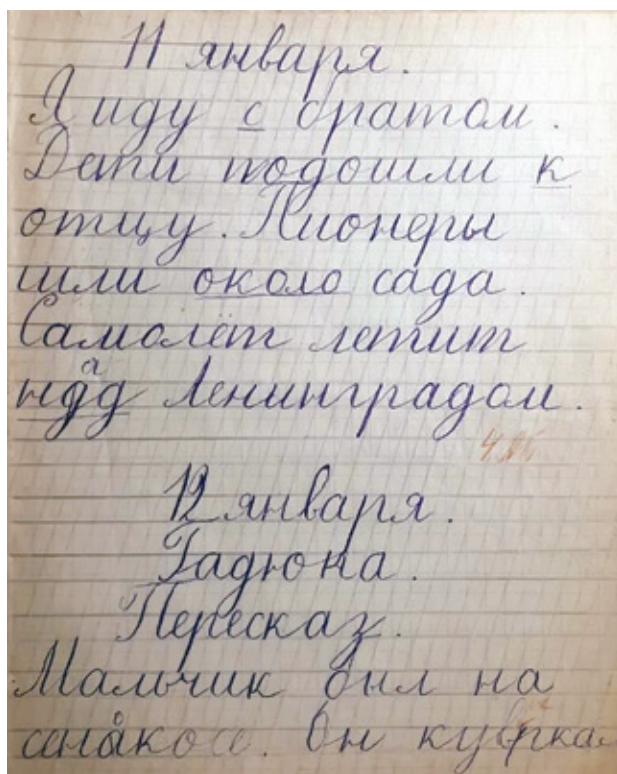 11 января.
Я иду с братом.
Дети подошли к
отцу. Пионеры
шли около сада.
Самолёт летит
над Ленинградом.
12 января.
Гадюка.
Пересказ.
Мальчик был на
Он